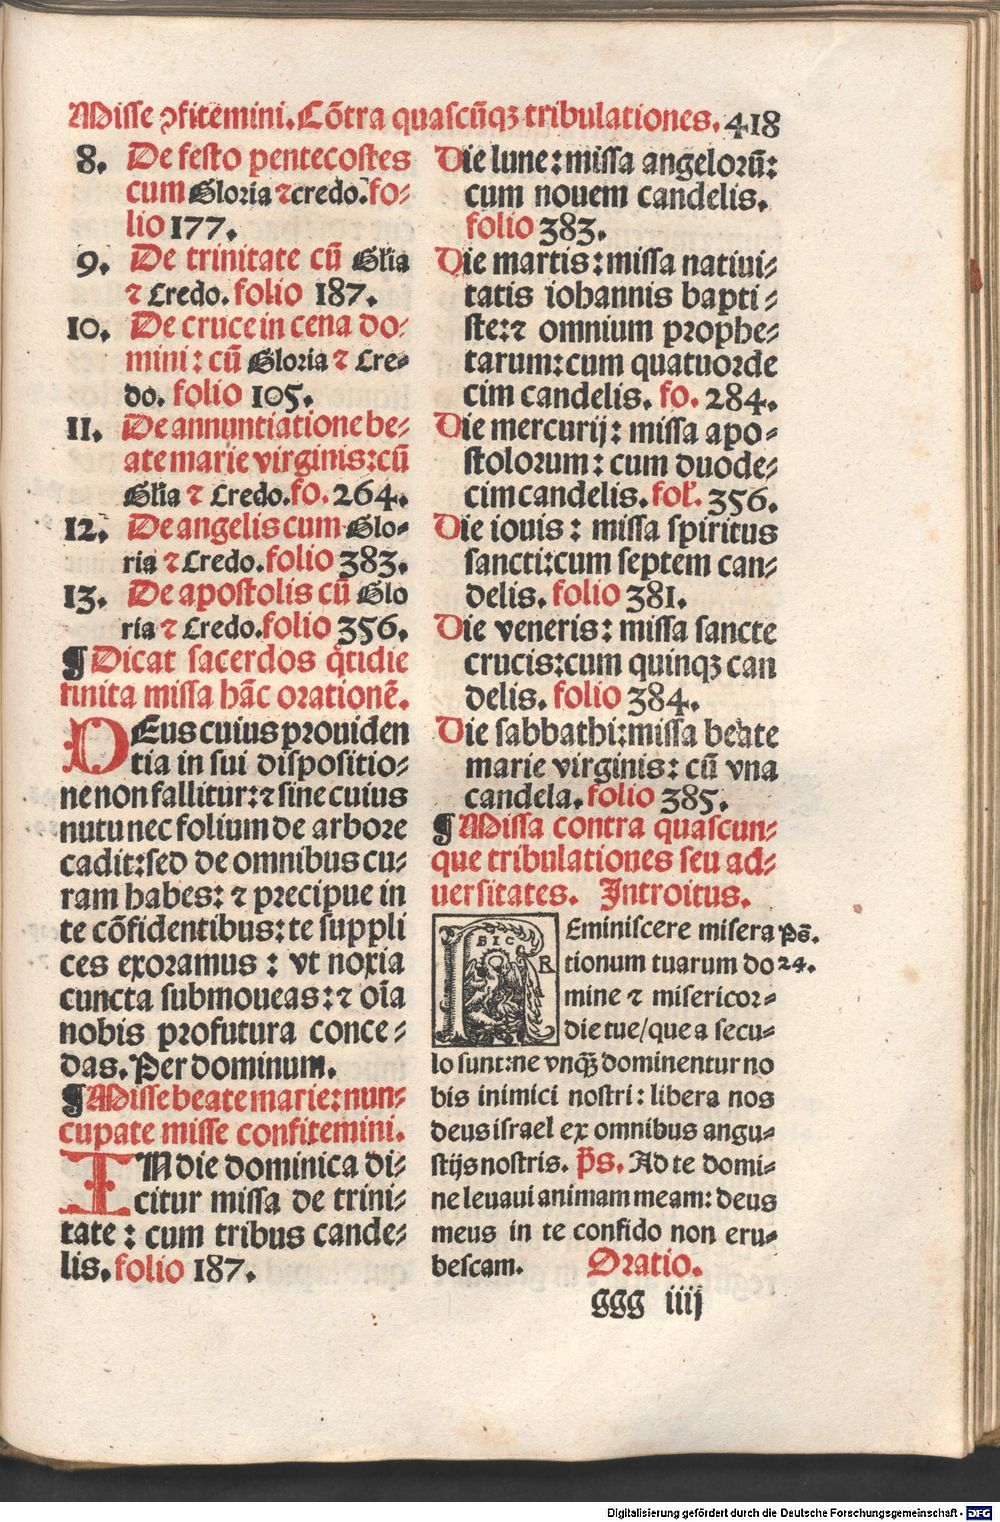 Misse ꝯfitemini. Cōtra quascūqꝫ tribulationes. 418
8. De festo pentecostes
cum Gloria ⁊ credo. fo⸗
lio 177.
9. De trinitate cū Glia
⁊ Credo. folio 187.
10. De cruce in cena do⸗
mini: cū Gloria ⁊ Cre⸗
do. folio 105.
11. De annuntiatione be⸗
ate marie virginis: cū
Glia ⁊ Credo. fo. 264.
12. De angelis cum Glo⸗
ria ⁊ Credo. folio 383.
13. De apostolis cū Glo
ria ⁊ Credo. folio 356.
¶ Dicat sacerdos q̄tidie
finita missa hāc orationē.
DEus cuius prouiden
tia in sui dispositio⸗
ne non fallitur: ⁊ sine cuius
nutu nec folium de arbore
cadit: sed de omnibus cu⸗
ram habes: ⁊ precipue in
te cōfidentibus: te suppli
ces exoramus: vt noxia
cuncta submoueas: ⁊ oīa
nobis profutura conce⸗
das. Per dominum.
¶ Misse beate marie: nun⸗
cupate misse confitemini.
IN die dominica di⸗
citur missa de trini⸗
tate: cum tribus cande⸗
lis. folio 187.
Die lune: missa angelorū:
cum nouem candelis.
folio 383.
Die martis: missa natiui⸗
tatis iohannis bapti⸗
ste: ⁊ omnium prophe⸗
tarum: cum quatuorde
cim candelis. fo. 284.
Die mercurij: missa apo⸗
stolorum: cum duode⸗
cim candelis. fol. 356.
Die iouis: missa spiritus
sancti: cum septem can⸗
delis. folio 381.
Die veneris: missa sancte
crucis: cum quinqꝫ can
delis. folio 384.
Die sabbathi: missa beate
marie virginis: cū vna
candela. folio 385.
¶ Missa contra quascun⸗
que tribulationes seu ad⸗
uersitates. Introitus.
REminiscere misera Ps̄.
tionum tuarum do 24.
mine ⁊ misericor⸗
die tue/que a secu⸗
lo sunt: ne vnqꝫ dominentur no
bis inimici nostri: libera nos
deus israel ex omnibus angu⸗
stijs nostris. p̄s. Ad te domi⸗
ne leuaui animam meam: deus
meus in te confido non eru⸗
bescam. Oratio.
ggg iiij
Digitalisierung gefördert durch die Deutsche Forschungsgemeinschaft - DFG